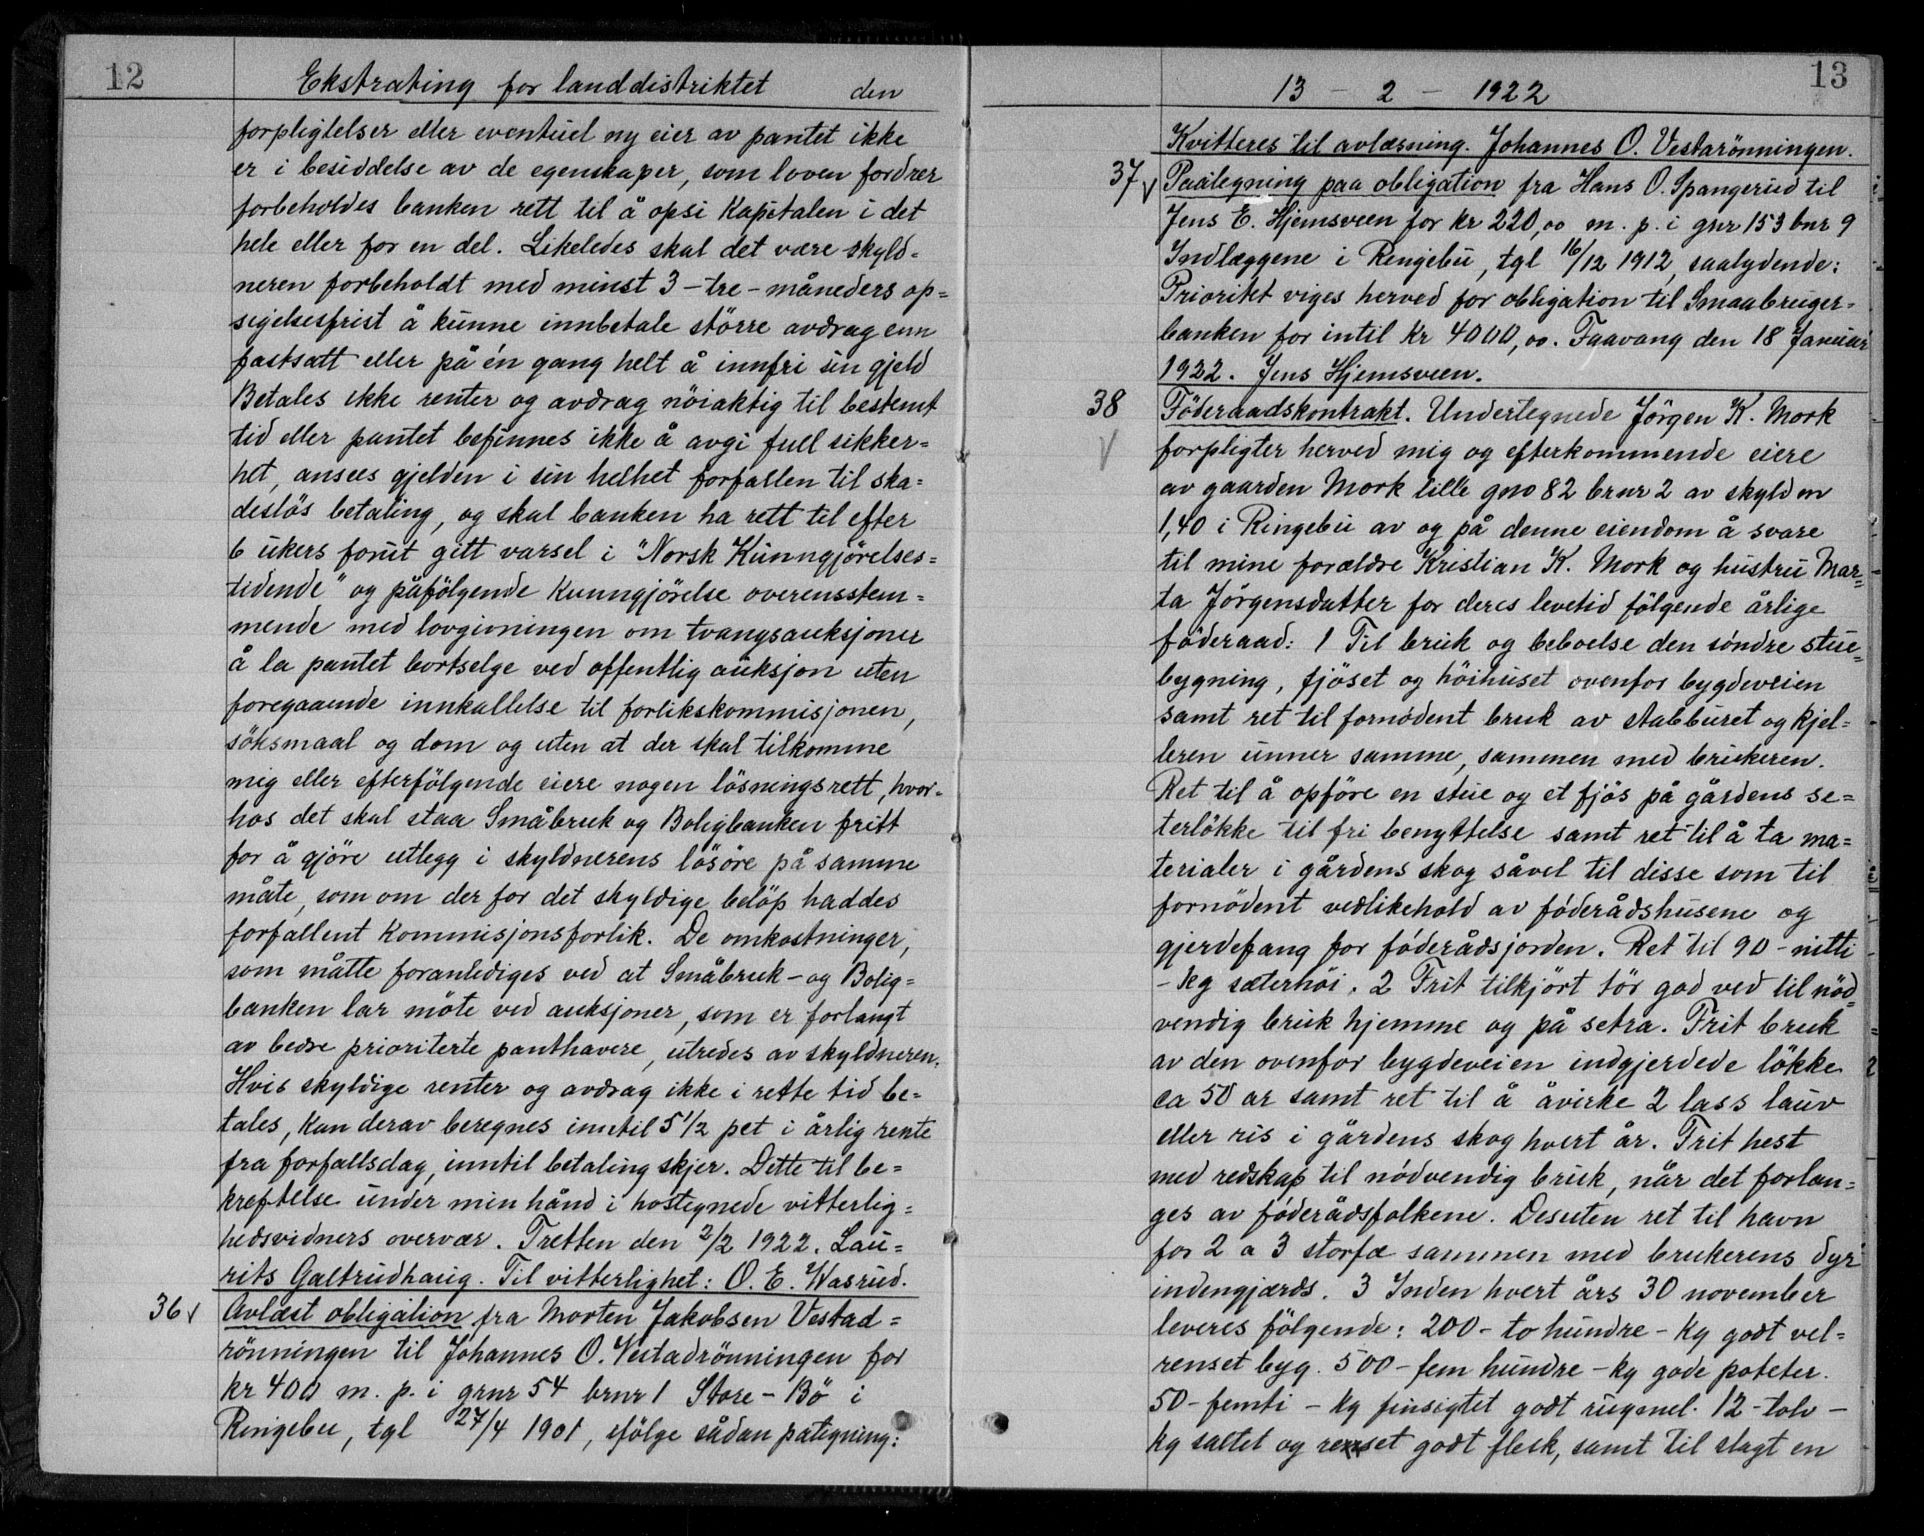 12
Ekstrating for landdistriktet den
forpligtelser eller eventuel ny eier av pantet ikke
er i besiddelse av de egenskaper, som loven fordrer
forbeholdes banken rett til å opsi Kapitalen i det
hele eller for en del. Likeledes skal det være skyld=
neren forbeholdt med minst 3 - tre - måneders op=
sigelsesfrist å kunne innbetale större avdrag enn
fastsatt eller på én gang helt å innfri sin gjeld
Betales ikke renter og avdrag nöiaktig til bestemt
tid eller pantet befinnes ikke å avgi full sikker=
het, ansees gjelden i sin helhet forfallen til ska=
deslös betaling, og skal banken ha rett til efter
6 ukers forut gitt varsel i "Norsk Kunngjörelses=
tidende" og påfölgende Kunngjörelse overensstem=
mende med lovgivningen om tvangsauksjoner
å la pantet bortselge ved offentlig auksjon uten
foregaaende innkallelse til forlikskommisjonen,
söksmaal og dom og uten at der skal tilkomme
mig eller efterfölgende eiere nogen lösningsrett, hvor-
hos det skal staa Småbruk og Boligbanken fritt
for å gjöre utlegg i skyldnerens lösöre på samme
måte, som om der for det skyldige belöp haddes
forfallent Kommisjonsforlik. De omkostninger,
som måtte foranlediges ved at Småbruk - og Bolig=
banken lar möte ved auksjoner, som er forlangt
av bedre prioriterte panthavere, utredes av skyldneren.
Hvis skyldige renter og avdrag ikke i rette tid be=
tales, kan derav beregnes inntil 5 1/2 pct i årlig rente
fra forfallsdag, inntil betaling skjer. Dette til be=
kreftelse under min hånd i hostegnede vitterlig=
hedsvidners overvær. Tretten den 2/2 1922. Lau=
rits Galtrudhaug. Til vitterlighet: O. E. Wasrud.
36 √ Avlæst obligation fra Morten Jakobsen Vestad=
rönningen til Johannes O. Vestadrönningen for
kr 400 m. p. i grnr 54 brnr 1 Store - Bö i
Ringebu, tgl 27/4 1901, ifölge sådan påtegning:
13
13 - 2 - 1922
Kvitteres til avlæsning. Johannes O. Vestarönningen.
37 √ Paategning paa obligation fra Hans O. Spangerud til
Jens E. Hjemsveen for kr 220,oo m. p. i gnr 153 bnr 9
Indlæggene i Ringebu, tgl 16/12 1912, saalydende:
Prioritet viges herved for obligation til Smaabruger=
banken for intil Kr 4000,oo. Faavang den 18 Januar
1922. Jens Hjemsveen.
38 √ Föderaadskontrakt. Undertegnede Jörgen K. Mork
forpligter herved mig og efterkommende eiere
av gaarden Mork lille gno 82 brnr 2 av skyld m
1,40 i Ringebu av og på denne eiendom å svare
til mine forældre Kristian K. Mork og hustru Mar=
ta Jörgensdatter for deres levetid fölgende årlige
föderaad: 1 Til bruk og beboelse den söndre stue=
bygning, fjöset og höihuset ovenfor bygdeveien
samt ret til fornödent bruk av stabburet og kjel=
leren unner samme, sammen med brukeren.
Ret til å opföre en stue og et fjös på gårdens se=
terlökke til fri benyttelse samt ret til å ta ma=
terialer i gårdens skog såvel til disse som til
fornödent vedlikehold av föderådshusene og
gjerdefang for föderådsjorden. Ret til 90 - nitti
- kg sæterhöi. 2 Frit tilkjört tör god ved til nöd=
vendig bruk hjemme og på setra. Frit bruk
av den ovenfor bygdeveien indgjerdede lökke
ca 50 ar samt ret til å åvirke 2 lass lauv
eller ris i gårdens skog hvert år. Frit hest
med redskap til nödvendig bruk, når det forlan=
ges av föderådsfolkene. Desuten ret til havn
for 2 a 3 storfæ sammen med brukerens dyr
indengjærds. 3 Inden hvert års 30 november
leveres fölgende: 200 - to hundre - kg godt vel=
renset byg. 500 - fem hundre - kg gode poteter.
50 - femti - kg finsigtet godt rugmel. 12 - tolv -
kg saltet og renset godt flesk, samt til slagt en